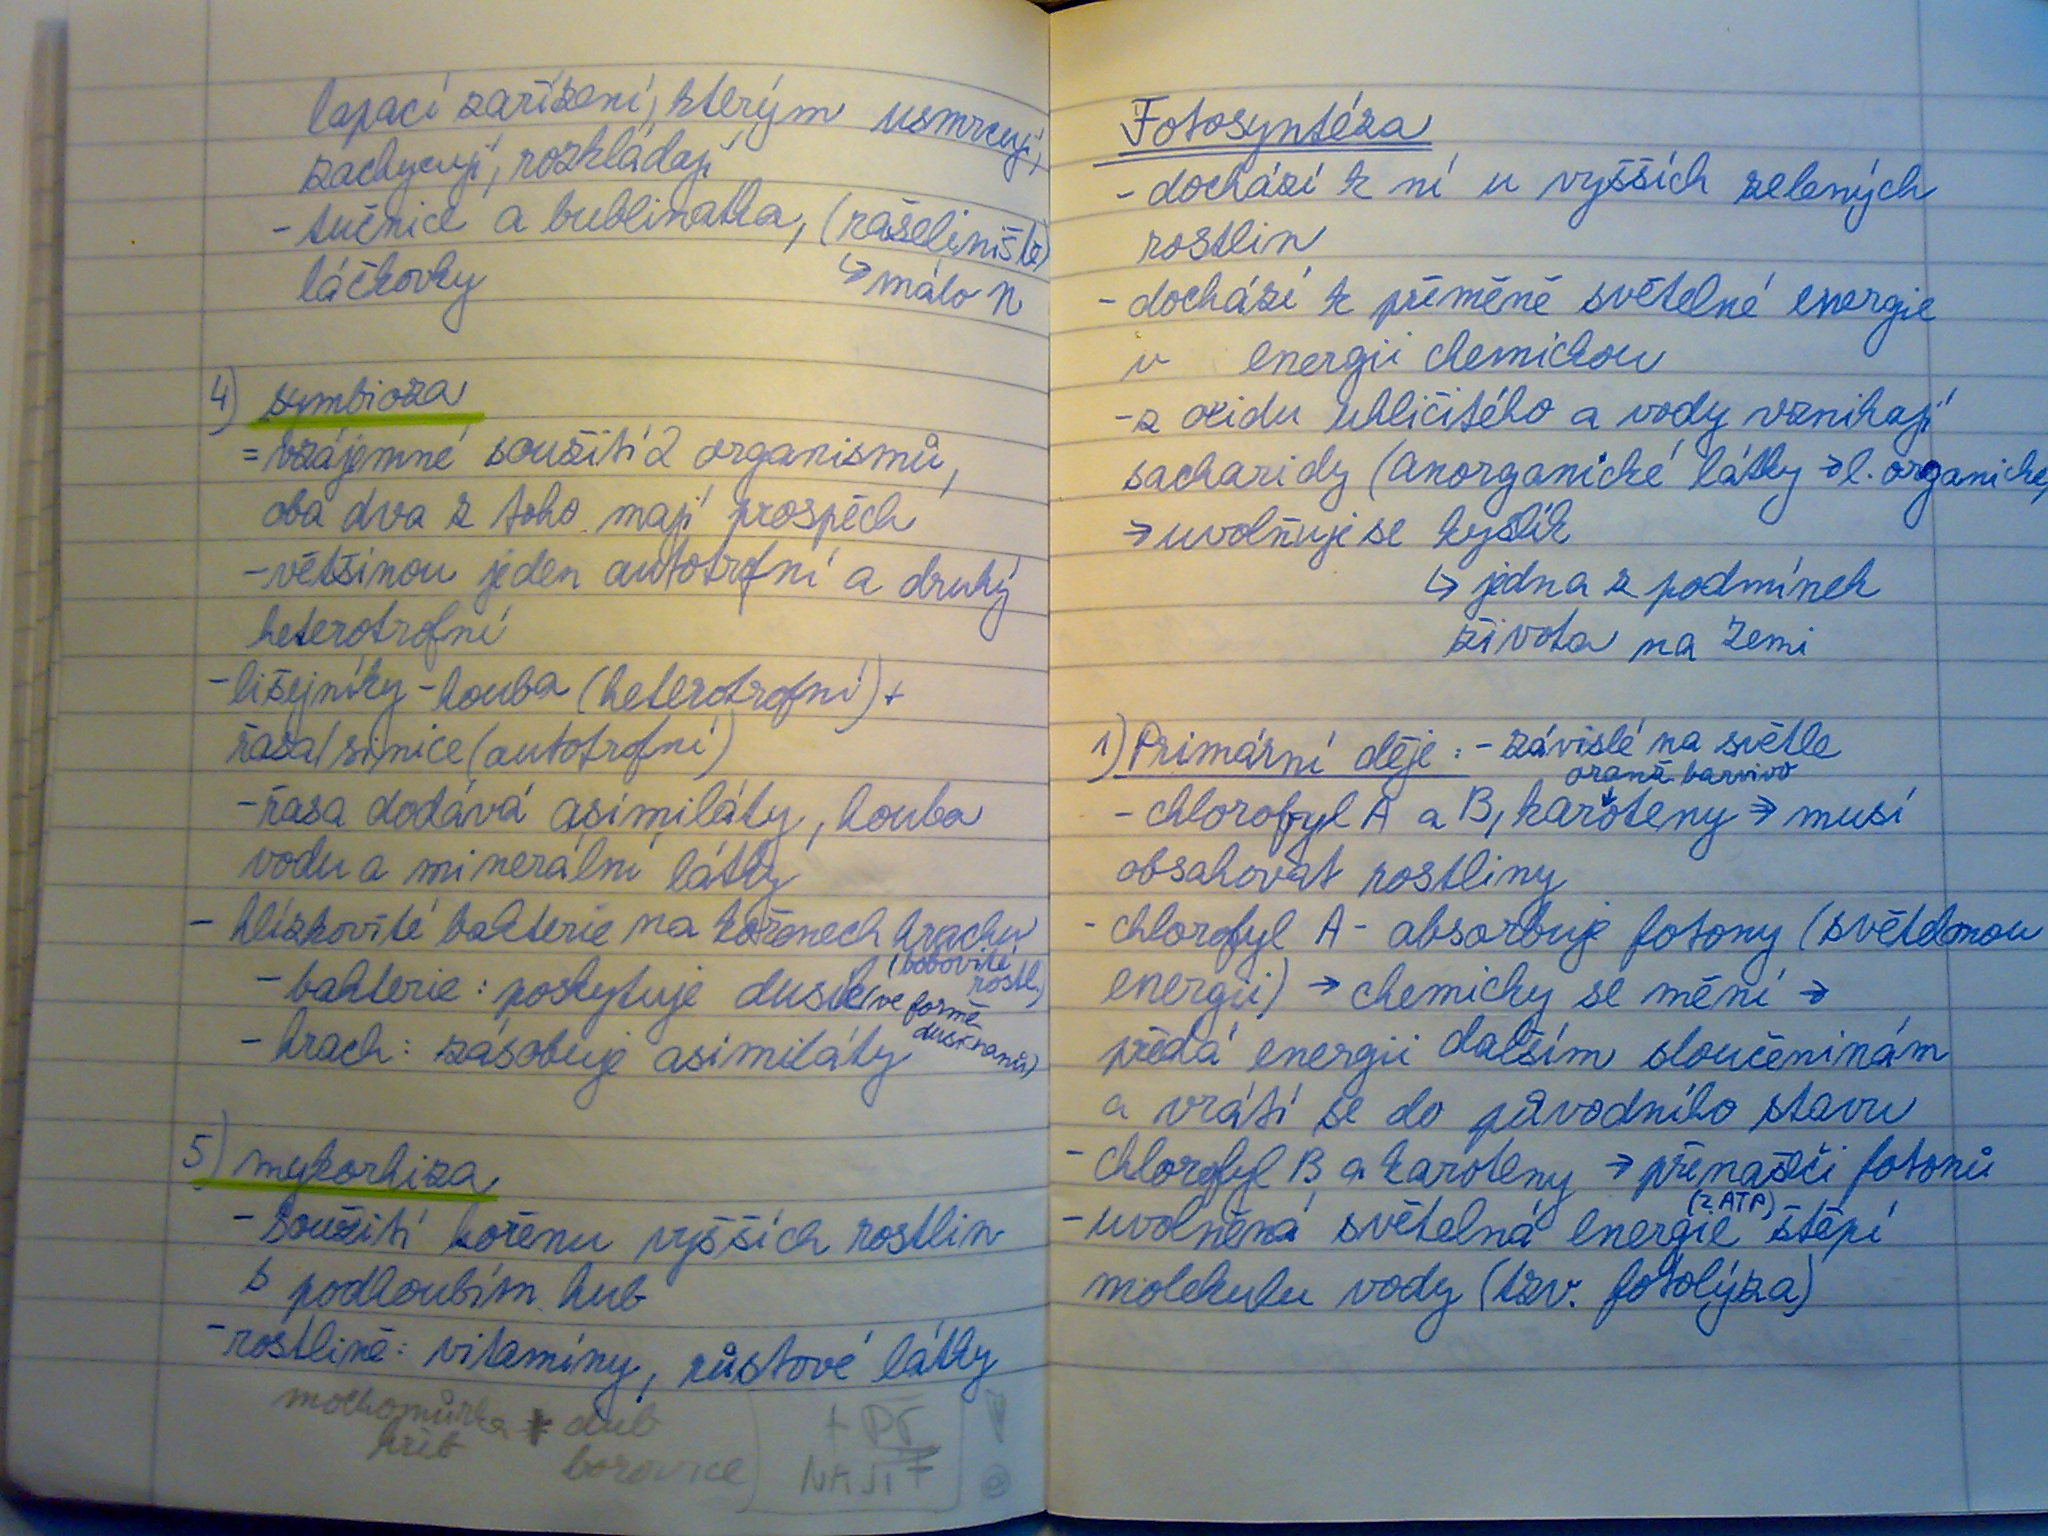 lapací zařízení, kterým usmrcují,
zachycují, rozkládají
- tučnice a bublinatka, (rašeliniště)
láčkovky ↳ málo N
4) symbioza
= vzájemné soužití 2 organismů,
oba dva z toho mají prospěch
- většinou jeden autotrofní a druhý
heterotrofní
- lišejníky - houba (heterotrofní) +
řasa/sinice (autotrofní)
- řasa dodává asimiláty, houba
vodu a minerální látky
- hlízkovité bakterie na kořenech hrachu
(bobovité rostl.)
- bakterie: poskytuje dusík (ve formě
dusičnanů)
- hrach: zásobuje asimiláty
5) mykorhiza
- soužití kořenu vyšších rostlin
s podhoubím hub
- rostlině: vitamíny, růstové látky
mochomůrka + dub
hřib borovice
NAJÍT
Fotosyntéza
- dochází k ní u vyšších zelených
rostlin
- dochází k přeměně světelné energie
v energii chemickou
- z oxidu uhličitého a vody vznikají
sacharidy (anorganické látky → l. organické)
→ uvolňuje se kyslík
↳ jedna z podmínek
života na Zemi
1) Primární děje: - závislé na světle
oranž. barvivo
- chlorofyl A a B, karoteny → musí
obsahovat rostliny
- chlorofyl A - absorbuje fotony (světelnou
energii) → chemicky se mění →
předá energii dalším sloučeninám
a vrátí se do původního stavu
- chlorofyl B a karoteny → přenašeči fotonů
(z ATP)
- uvolněná světelná energie štěpí
molekulu vody (tzv. fotolýza)